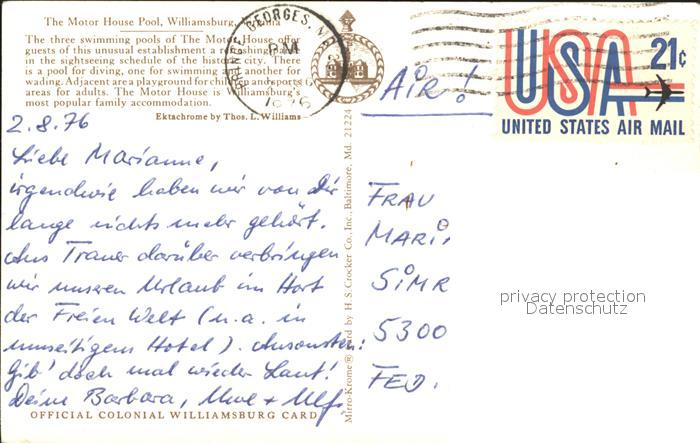 The Motor House Pool, Williamsburg,
The three swimming pools of The Motor House offer
guests of this unusual establishment a refreshing
in the sightseeing schedule of the historic city. There
is a pool for diving, one for swimming and another for
wading. Adjacent are a playground for children and sports
areas for adults. The Motor House is Williamsburg's
most popular family accommodation.
Ektachrome by Thos. L. Williams
2.8.76
Liebe Marianne,
irgendwie haben wir von Dir
lange nichts mehr gehört.
Aus Trauer darüber verbringen
wir unseren Urlaub im Hort
der Freien Welt (u.a. in
umseitigem Hotel). Ansonsten:
Gib' doch mal wieder Laut!
Deine Barbara, Uwe + Ulf.
OFFICIAL COLONIAL WILLIAMSBURG CARD
Mirro-Krome® Card by H. S. Crocker Co., Inc., Baltimore, Md. 21224
GEORGES, N
PM
1976
AIR!
USA 21¢
UNITED STATES AIR MAIL
FRAU
MARI
SIMR
5300
FED.
privacy protection
Datenschutz